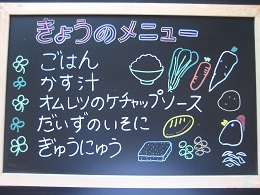 きょうのメニュー
ごはん
かす汁
オムレツのケチャップソース
だいずのいそに
ぎゅうにゅう